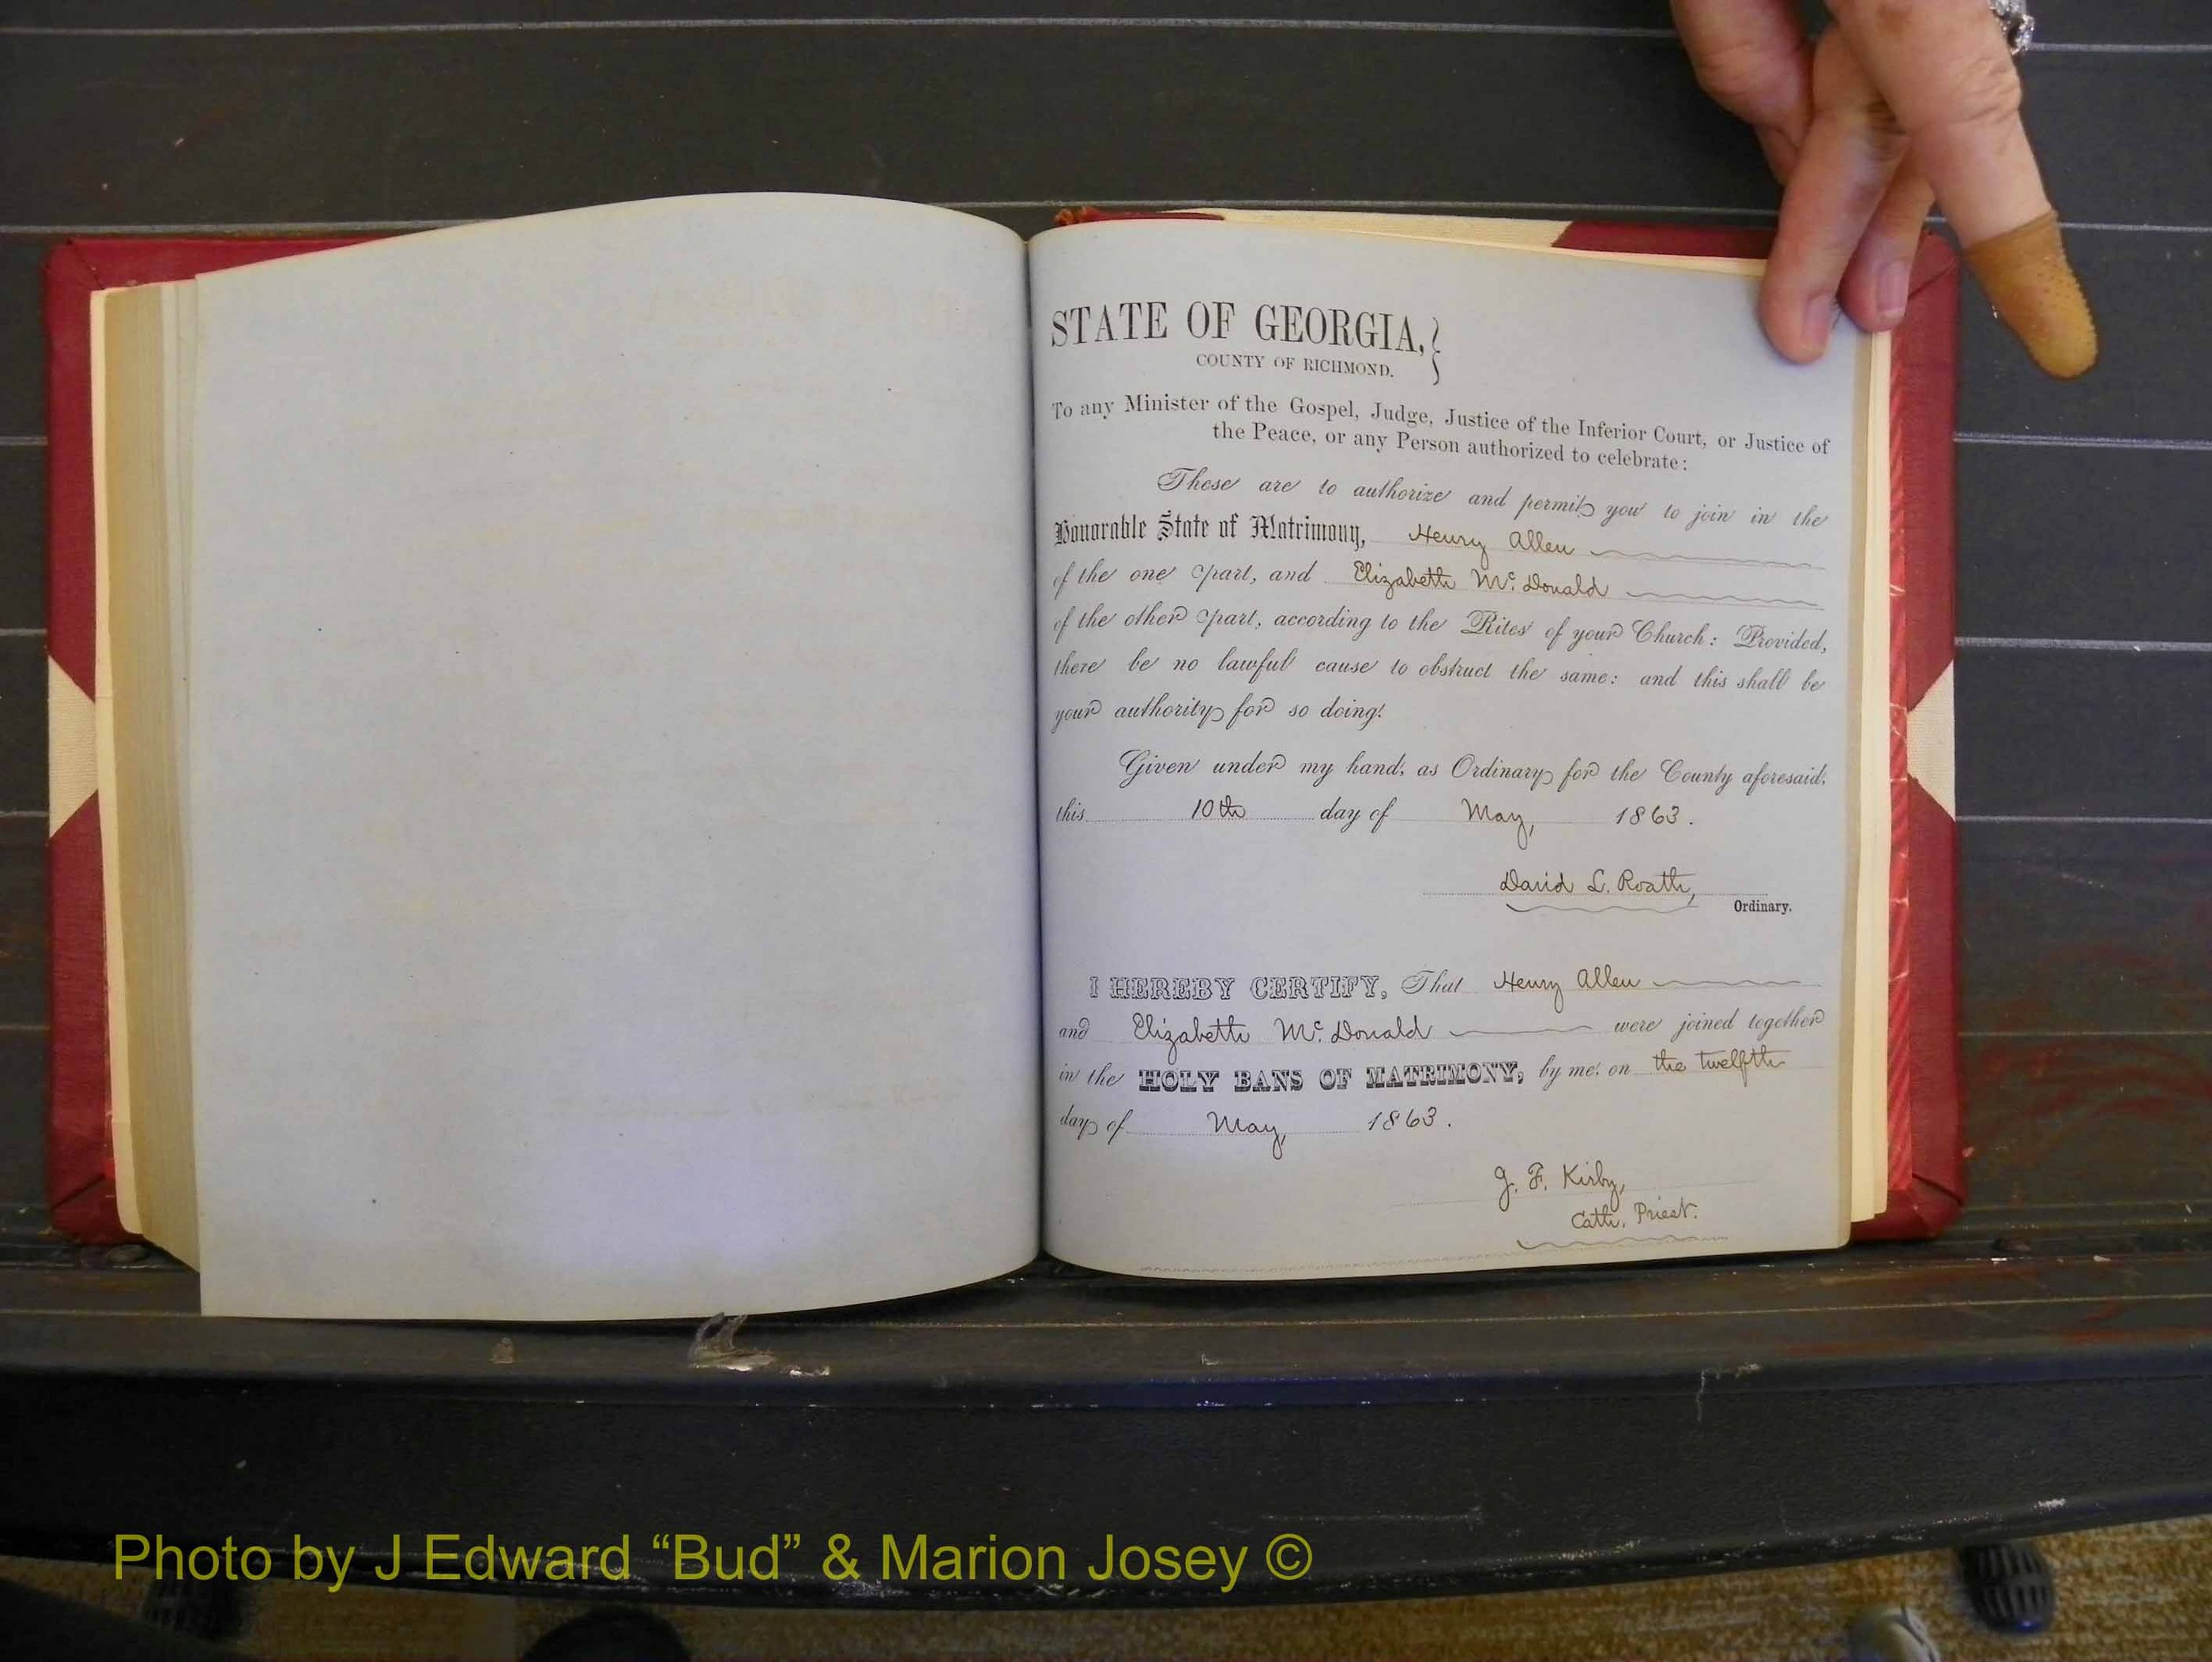 STATE OF GEORGIA,
COUNTY OF RICHMOND.
To any Minister of the Gospel, Judge, Justice of the Inferior Court, or Justice of
the Peace, or any Person authorized to celebrate:
These are to authorize and permit you to join in the
Honorable State of Matrimony, Henry Allen
of the one part, and Elizabeth Mc. Donald
of the other part, according to the Rites of your Church: Provided,
there be no lawful cause to obstruct the same: and this shall be
your authority for so doing.
Given under my hand, as Ordinary for the County aforesaid,
this 10th day of May, 1863.
David L. Roath,
Ordinary.
I HEREBY CERTIFY, That Henry Allen
and Elizabeth Mc. Donald were joined together
in the HOLY BANS OF MATRIMONY, by me. on the twelfth
day of May, 1863.
J. F. Kirby,
Cath. Priest.
Photo by J Edward “Bud” & Marion Josey ©